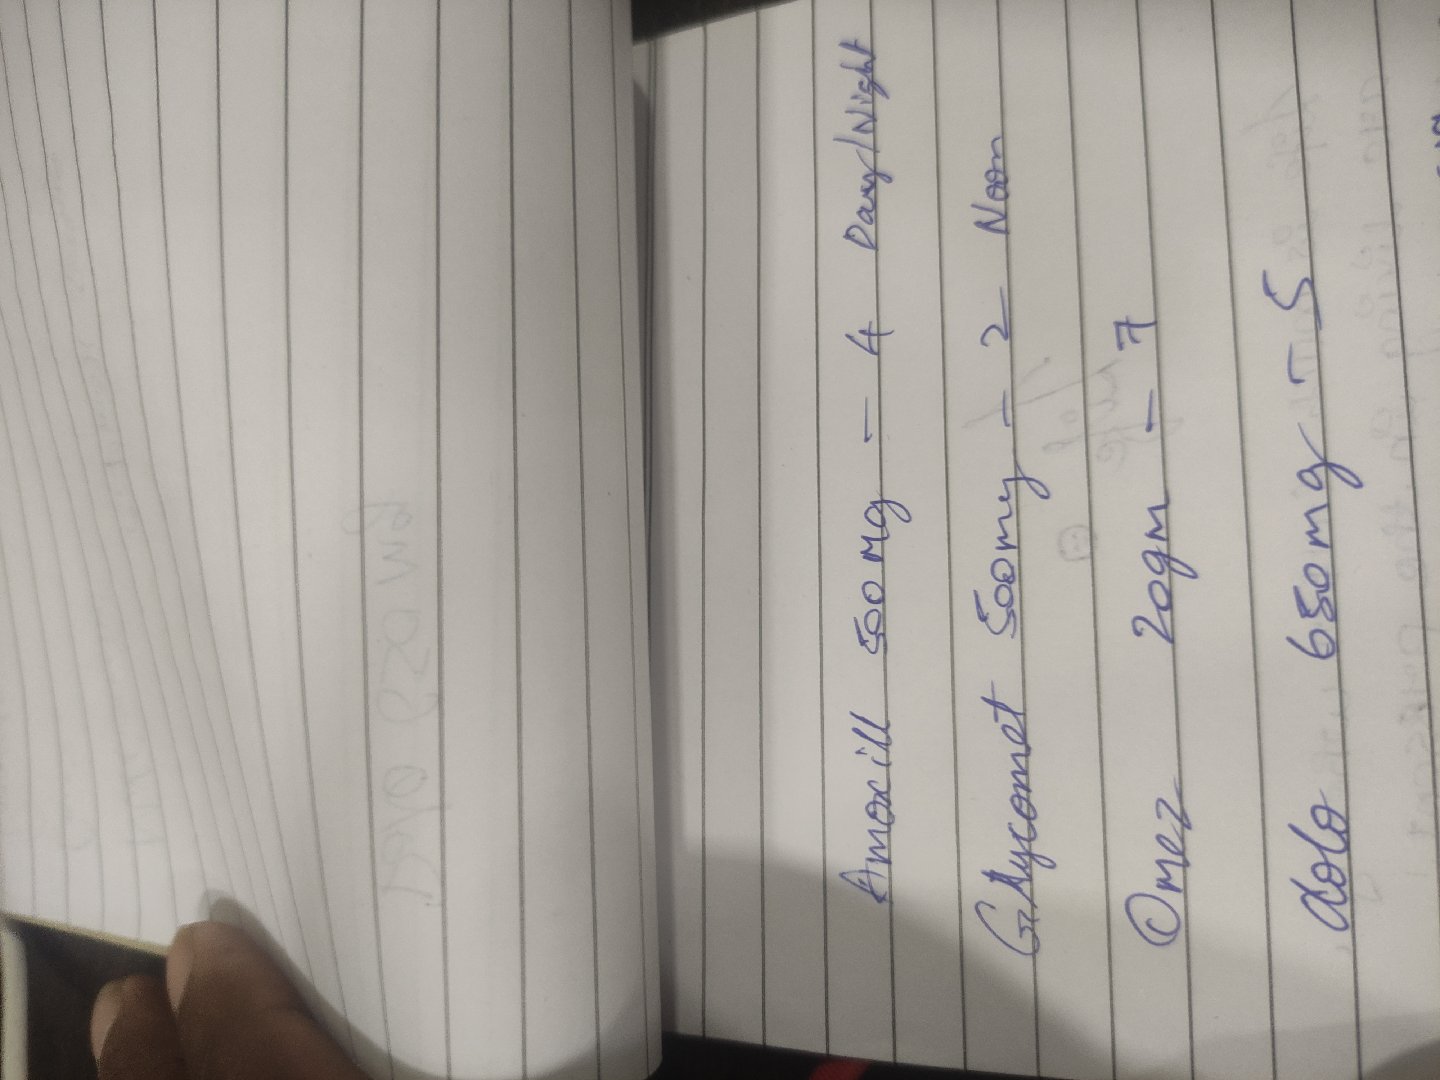 Amoxill 500 mg - 4 Day/Night
Glycomet 500mg - 2 Noon
Omez 20gm - 7
dolo 650mg - 5